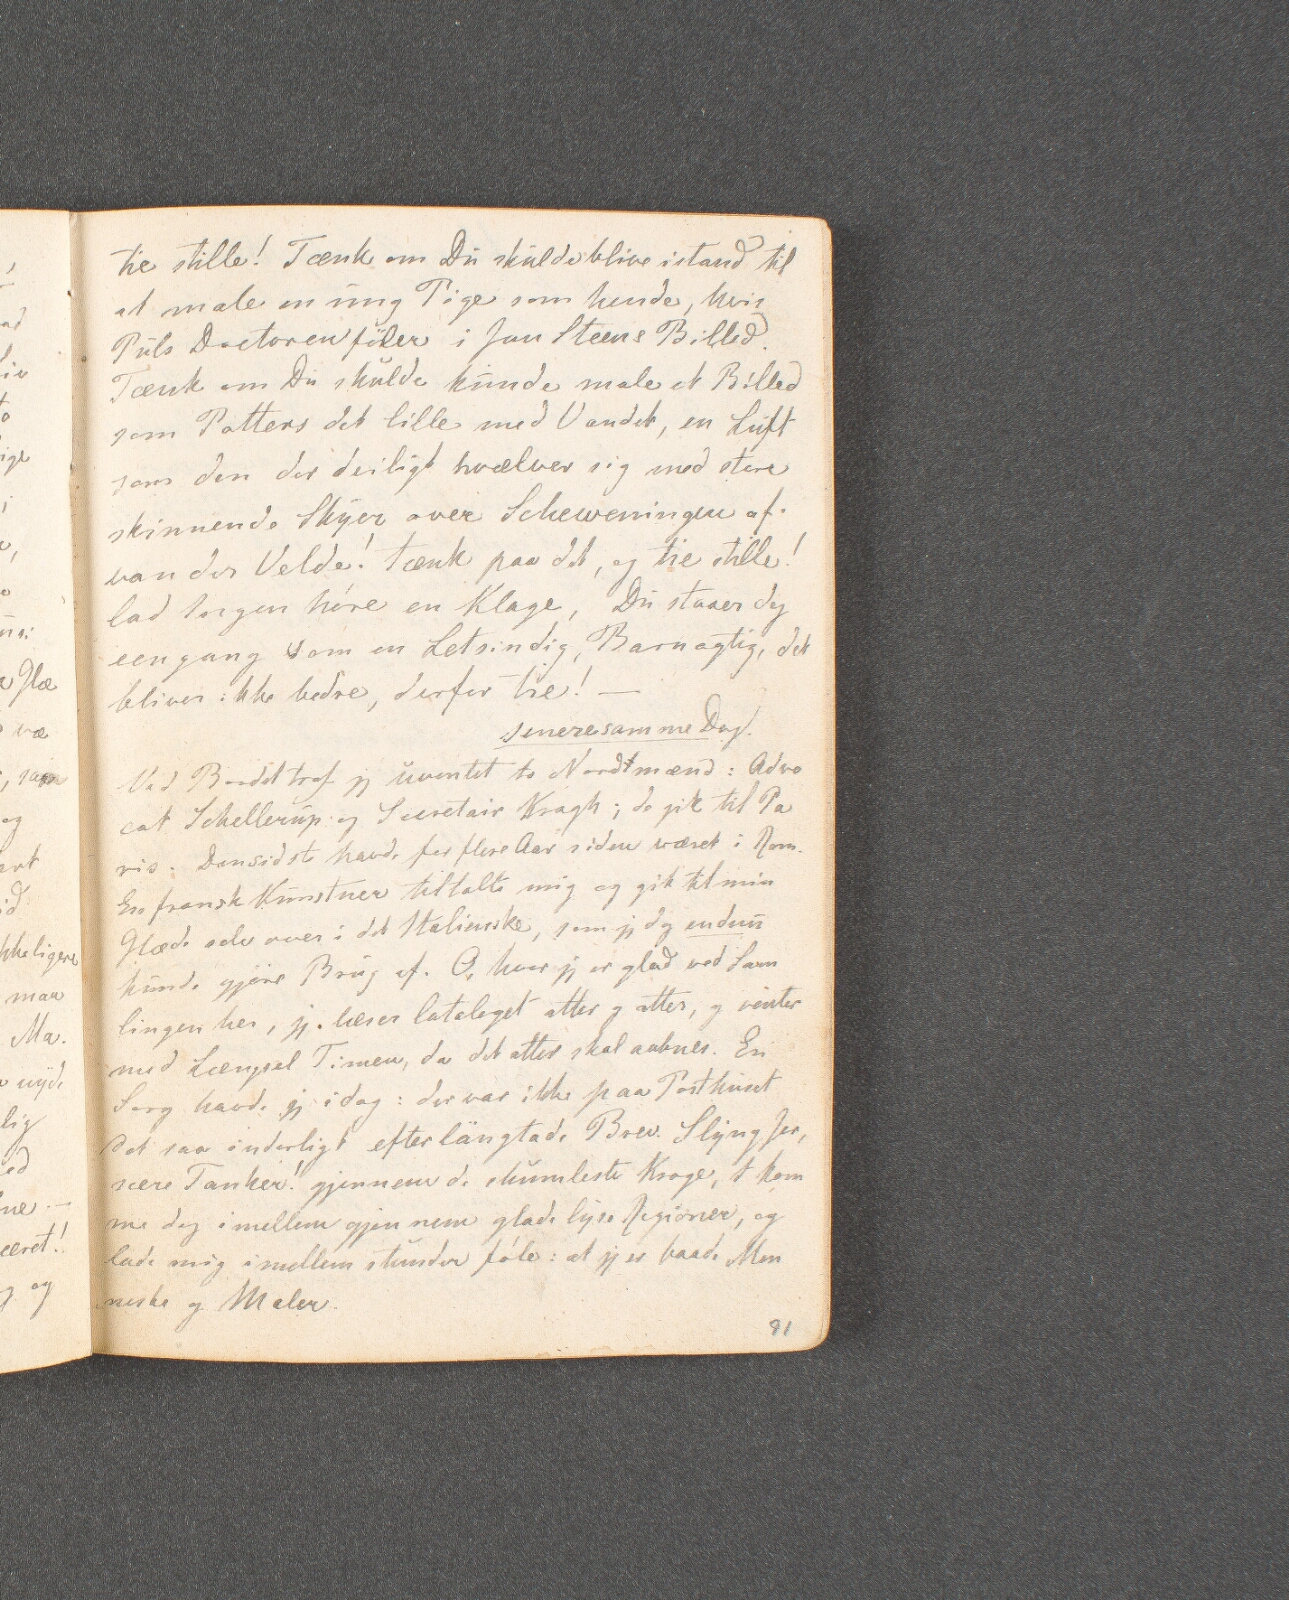 tie stille! Tænk om Du skulde blive istand til
at male en ung Pige som hende, hvis
Puls Doctoren föler i Jan Steens Billed.
Tænk om Du skulde kunde male et Billed
som Potters det lille med Vandet, en Luft
som den der deiligt hvælver sig med store
skinnende Skyer over Scheweningen af
van der Velde! tænk paa det, og tie stille!
lad Ingen höre en Klage, Du staaer dog
eengang som en Letsindig, Barnagtig, det
bliver ikke bedre, derfor tie! —
senere samme Dag.
Ved Bordet traf jeg uventet to Nordmænd: Advo
cat Schellerup og Secretair Kragh; de gik til Pa
ris. Den sidste havde for flere Aar siden været i Rom.
En fransk Kunstner tiltalte mig og gik til min
Glæde selv over i det Italienske, som jeg dog endnu
kunde gjöre Brug af. O, hvor jeg er glad ved Sam
lingen her, jeg læser Cataloget atter og atter, og venter
med Længsel Timen, da det atter skal aabnes. En
Sorg havde jeg idag: der var ikke paa Posthuset
det saa inderligt efterlängtade Brev. Slyng Jer,
sære Tanker! gjennem de skumleste Kroge, kom
me dog imellem gjennem glade lyse Regioner, og
lade mig imellem stunder föle: at jeg er baade Men
neske og Maler.
81
ad
liv
to
ige
i
Glæ
væ
og
id
kkeligere
maa
Ma.
nyde
lig
ed
ne —
æret!
og